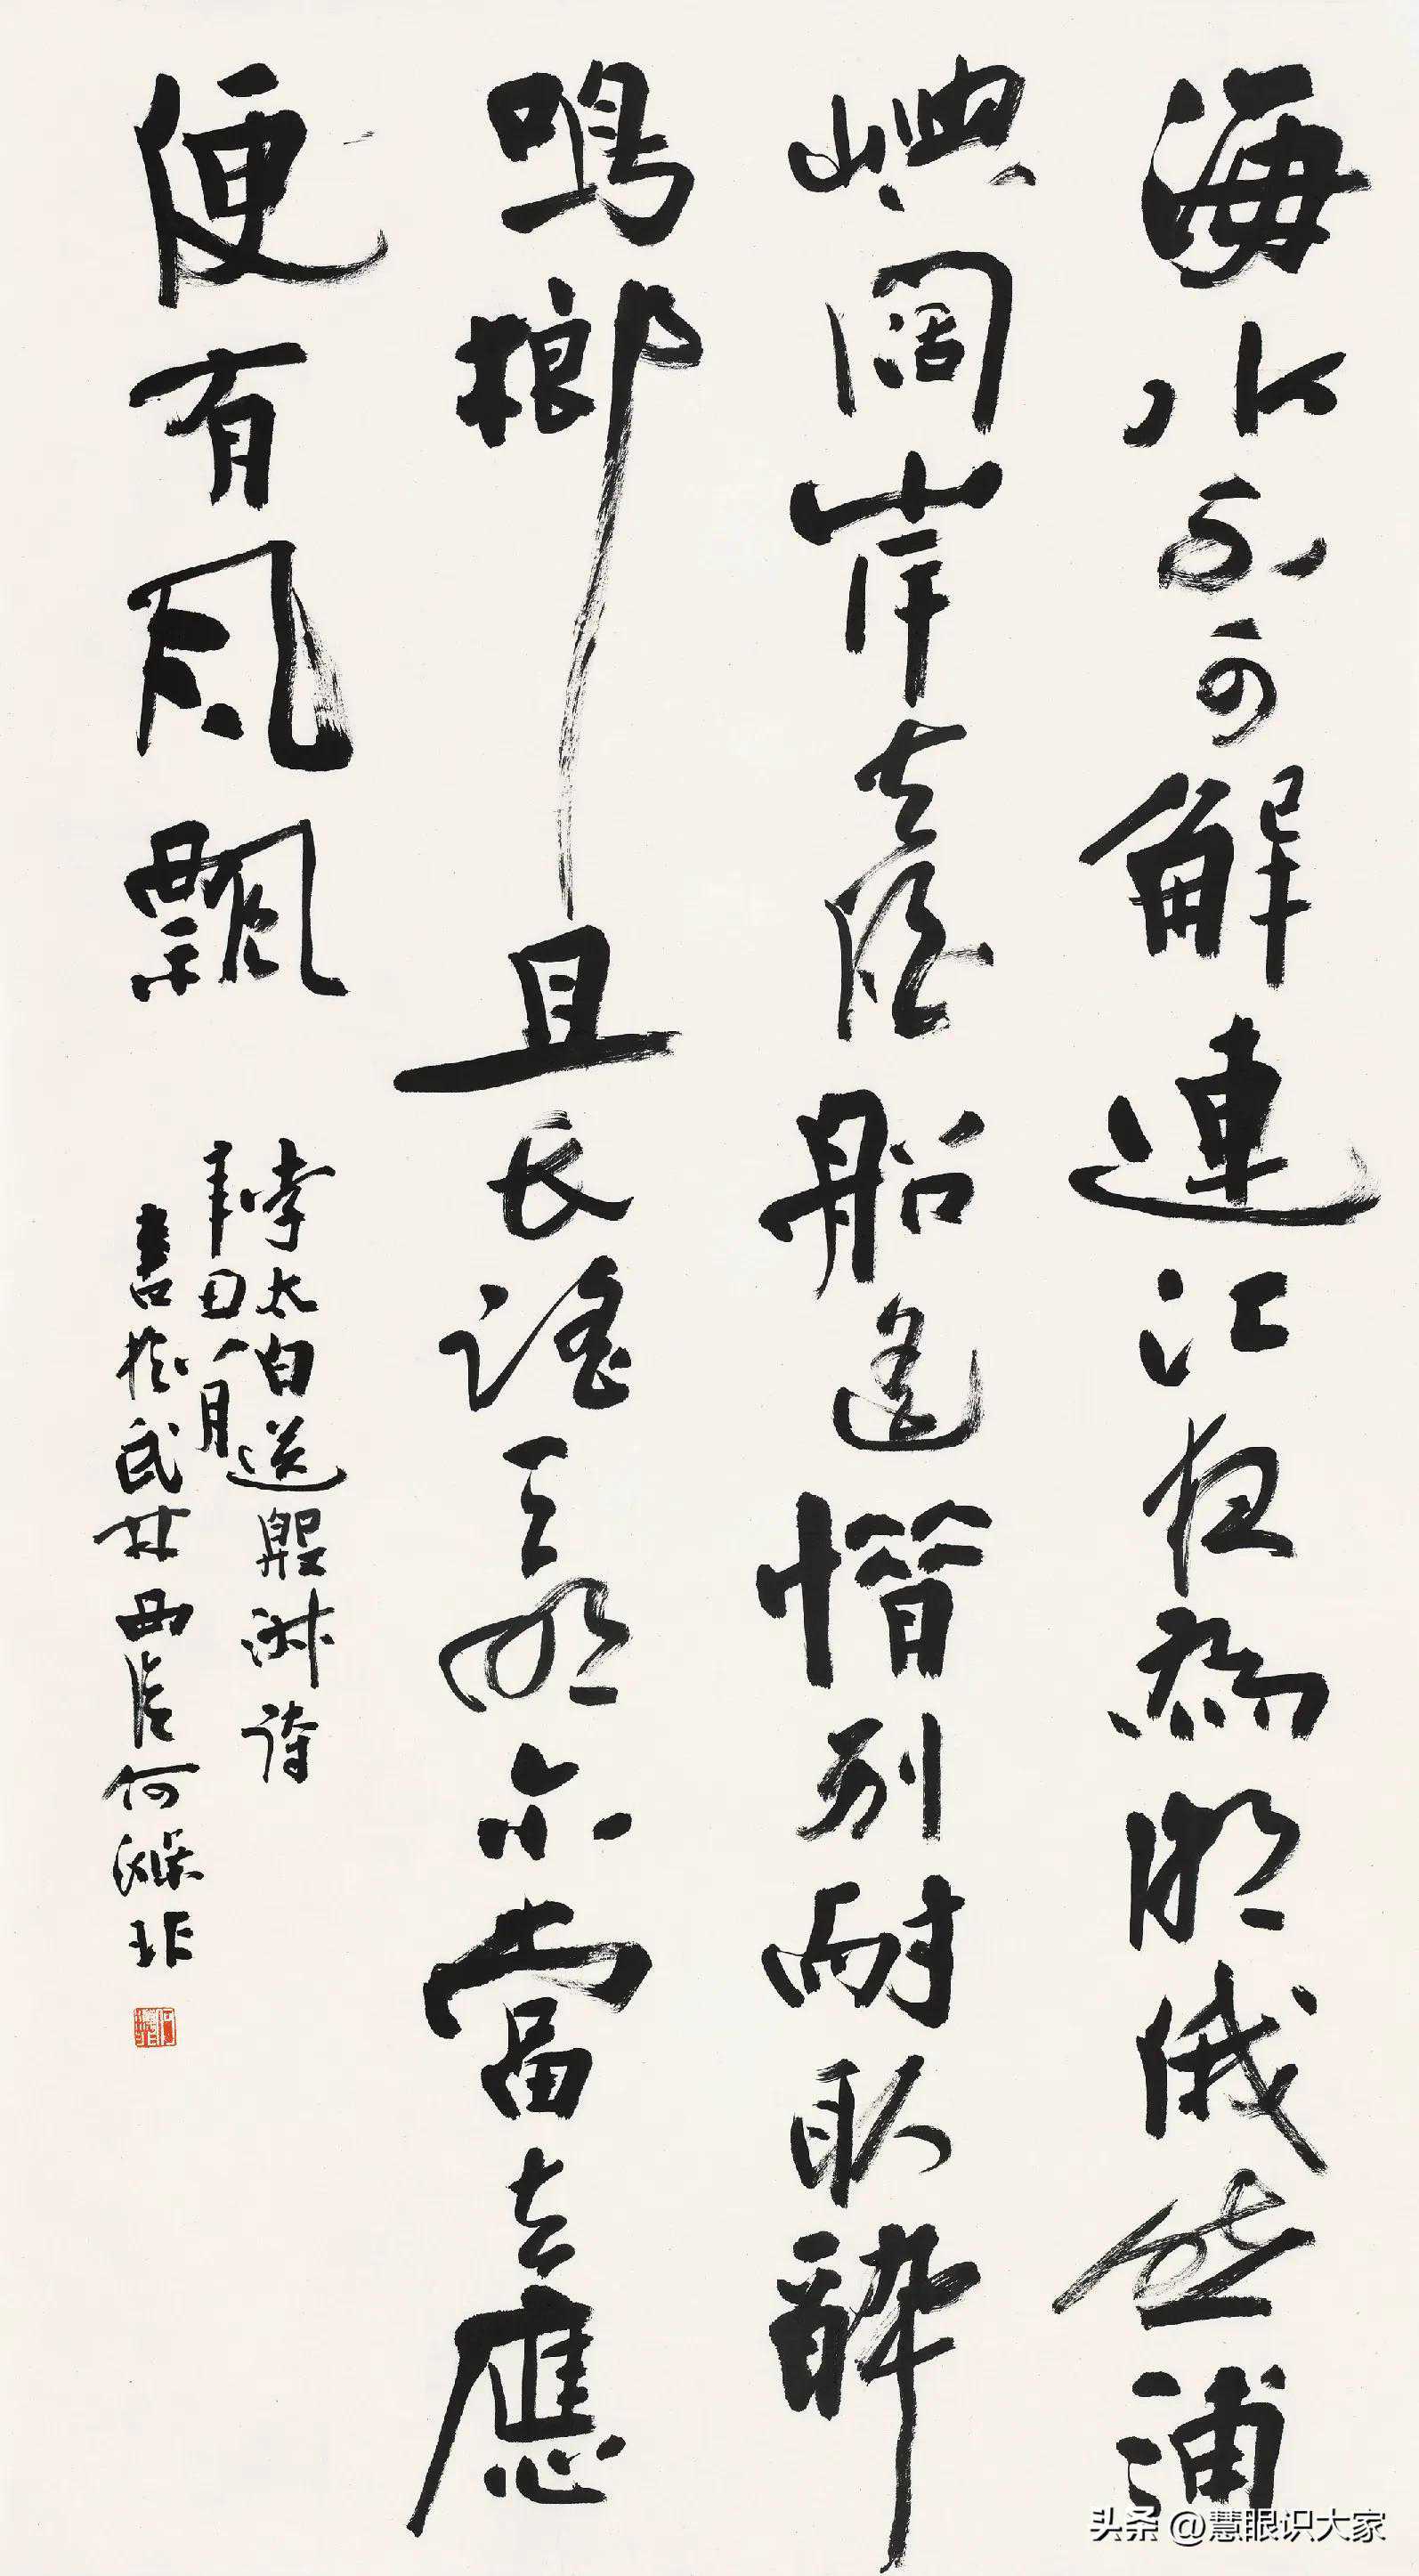 海水不可解連江夜為潮俄然浦
嶼闊岸去船遙惜別耐取醉
鳴榔且長謠天明尔當去應
便有風飄
李太白送殷淑詩
月
書於武林西何滌非
头条 @慧眼识大家